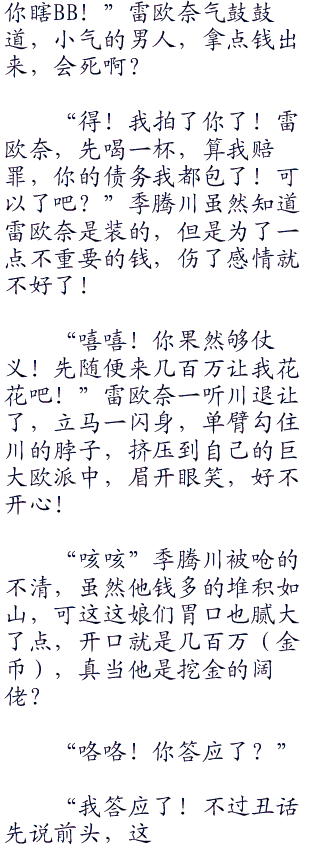 你瞎BB！”雷欧奈气鼓鼓
道，小气的男人，拿点钱出
来，会死啊？
“得！我拍了你了！雷
欧奈，先喝一杯，算我赔
罪，你的债务我都包了！可
以了吧？”季腾川虽然知道
雷欧奈是装的，但是为了一
点不重要的钱，伤了感情就
不好了！
“嘻嘻！你果然够仗
义！先随便来几百万让我花
花吧！”雷欧奈一听川退让
了，立马一闪身，单臂勾住
川的脖子，挤压到自己的巨
大欧派中，眉开眼笑，好不
开心！
“咳咳”季腾川被呛的
不清，虽然他钱多的堆积如
山，可这这娘们胃口也腻大
了点，开口就是几百万（金
币），真当他是挖金的阔
佬？
“咯咯！你答应了？”
“我答应了！不过丑话
先说前头，这